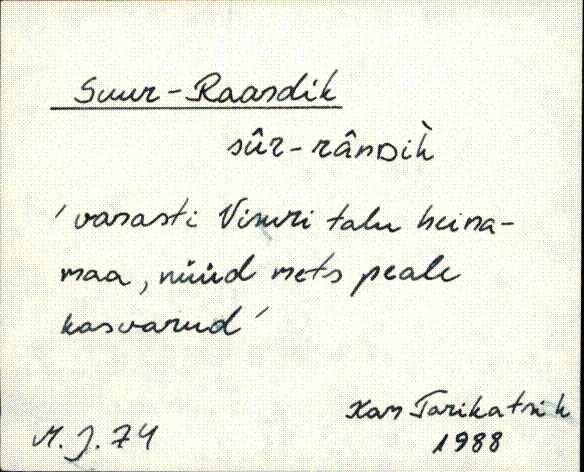 Suur-Raandik
sûr-rânᴅik̀
'vanasti Visuri talu heina-
maa, nüüd mets peale
kasvanud'
M. J. 74
Xan Tarikatsik
1988